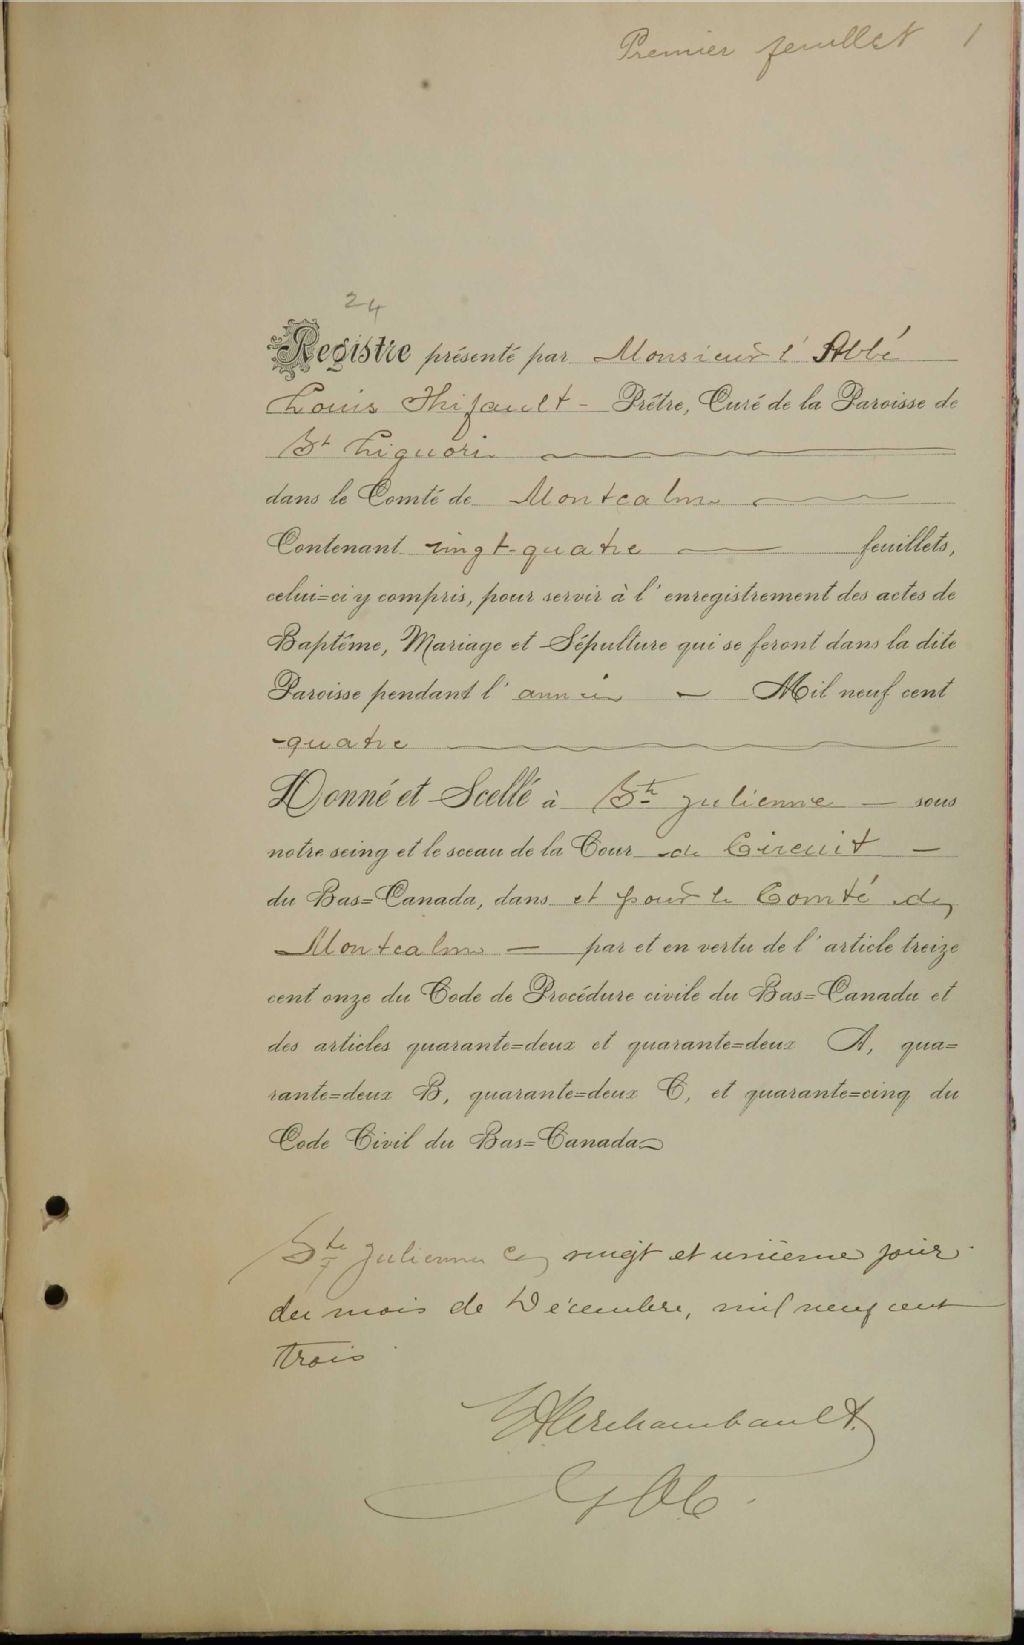 Premier feuillet 1
24
Registre présenté par Monsieur l'Abbé
Louis Thifault - Prêtre, Curé de la Paroisse de
St Liguori
dans le Comté de Montcalm
Contenant vingt-quatre feuillets,
celui=ci y compris, pour servir à l'enregistrement des actes de
Baptême, Mariage et Sépulture qui se feront dans la dite
Paroisse pendant l'année - Mil neuf cent
-quatre
Donné et Scellé à Ste Julienne - sous
notre seing et le sceau de la Cour de Circuit -
du Bas=Canada, dans et pour le Comté de
Montcalm - par et en vertu de l'article treize
cent onze du Code de Procédure civile du Bas=Canada et
des articles quarante=deux et quarante=deux A, qua=
rante=deux B, quarante=deux C, et quarante=cinq du
Code Civil du Bas=Canada
Ste Julienne ce vingt et unième jour
du mois de Décembre, mil neuf cent
trois
Archambault